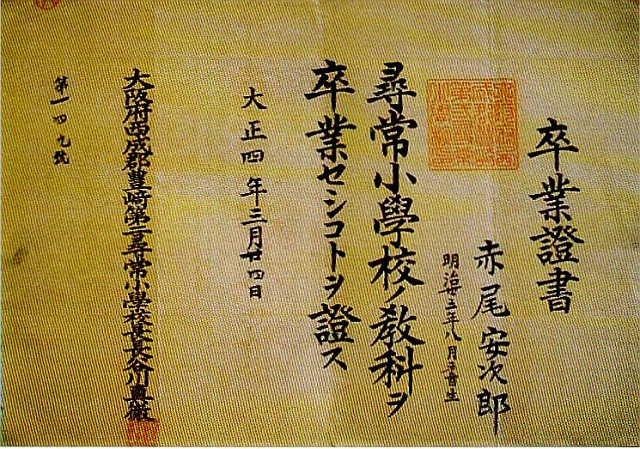 卒業證書
赤尾安次郎
明治卅三年八月 生
尋常小學校ノ教科ヲ
卒業セシコトヲ證ス
大正四年三月廿四日
大阪府西成郡豊崎第 尋常小學校長長谷川真徹
第一四九號